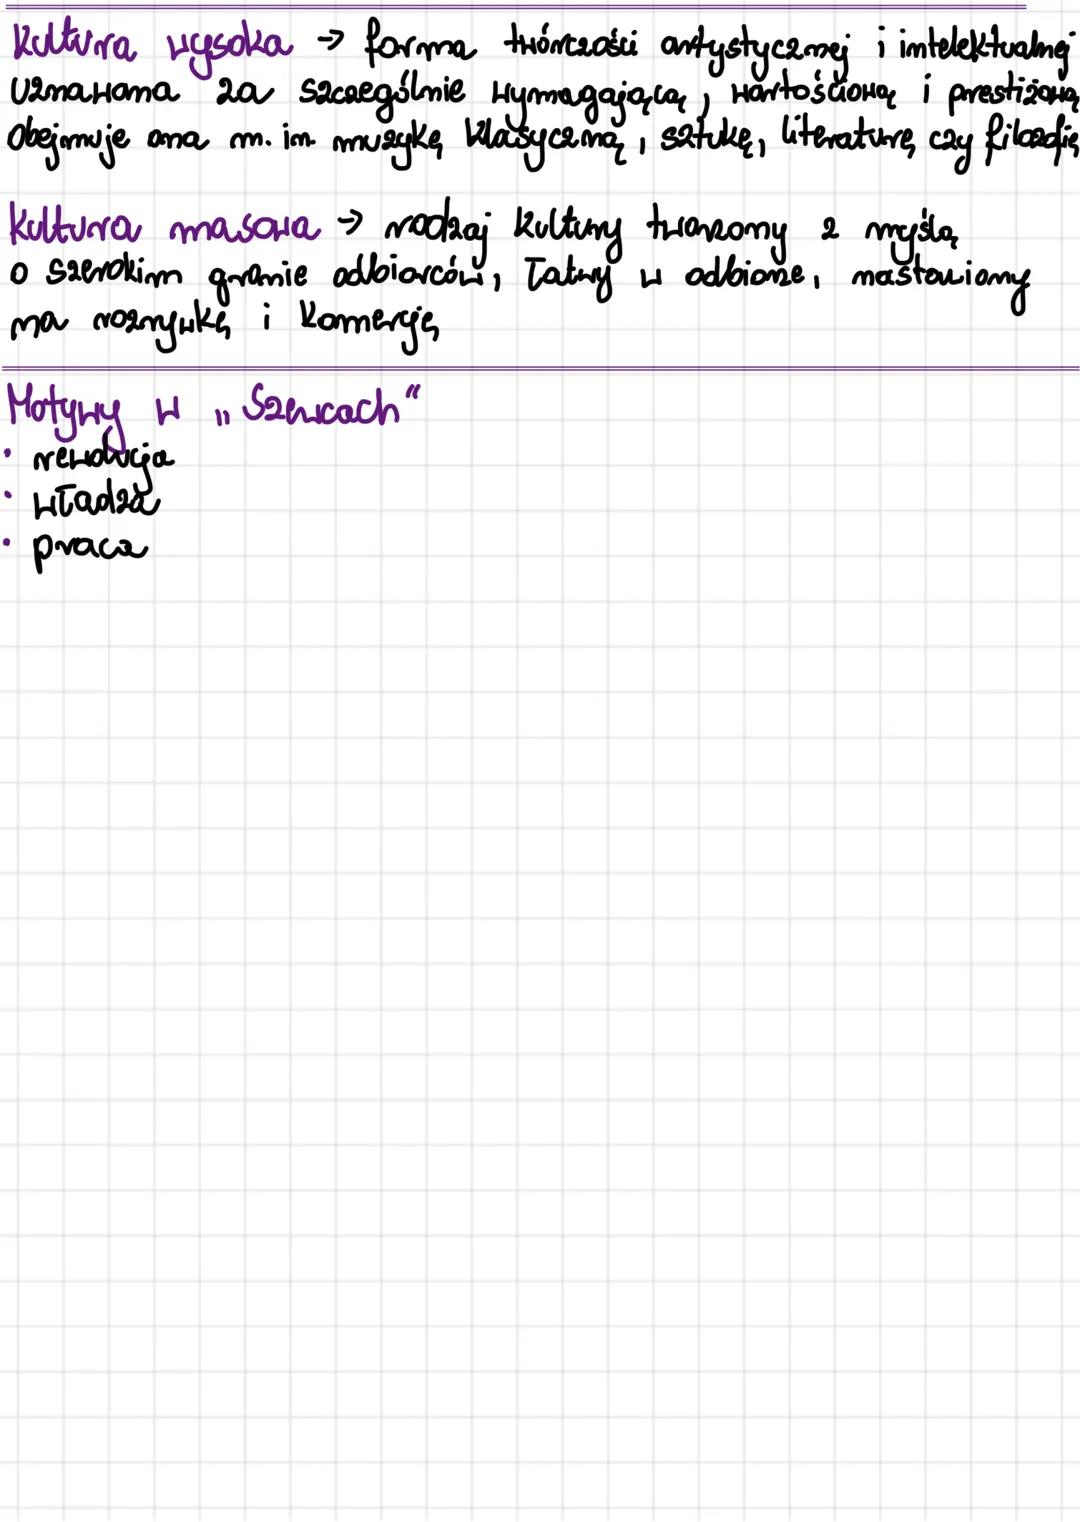 Kultura wysoka → forma twórczości artystycznej i intelektualnej
uznawana za szczególnie wymagającą, wartościową i prestiżową
Obejmuje ona m. in. muzykę klasyczną, sztukę, literaturę czy filozofię
Kultura masowa → rodzaj kultury tworzony z myślą
o szerokim gronie odbiorców, łatwy w odbiorze, nastawiony
na rozrywkę i komercję
Motywy w „Szewcach“
• rewolucja
• władza
• praca